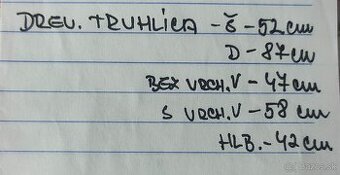 DREV. TRUHLICA - Š - 52 cm
D - 87 cm
BEZ VRCH. V - 47 cm
S VRCH. V - 58 cm
HLB. - 42 cm